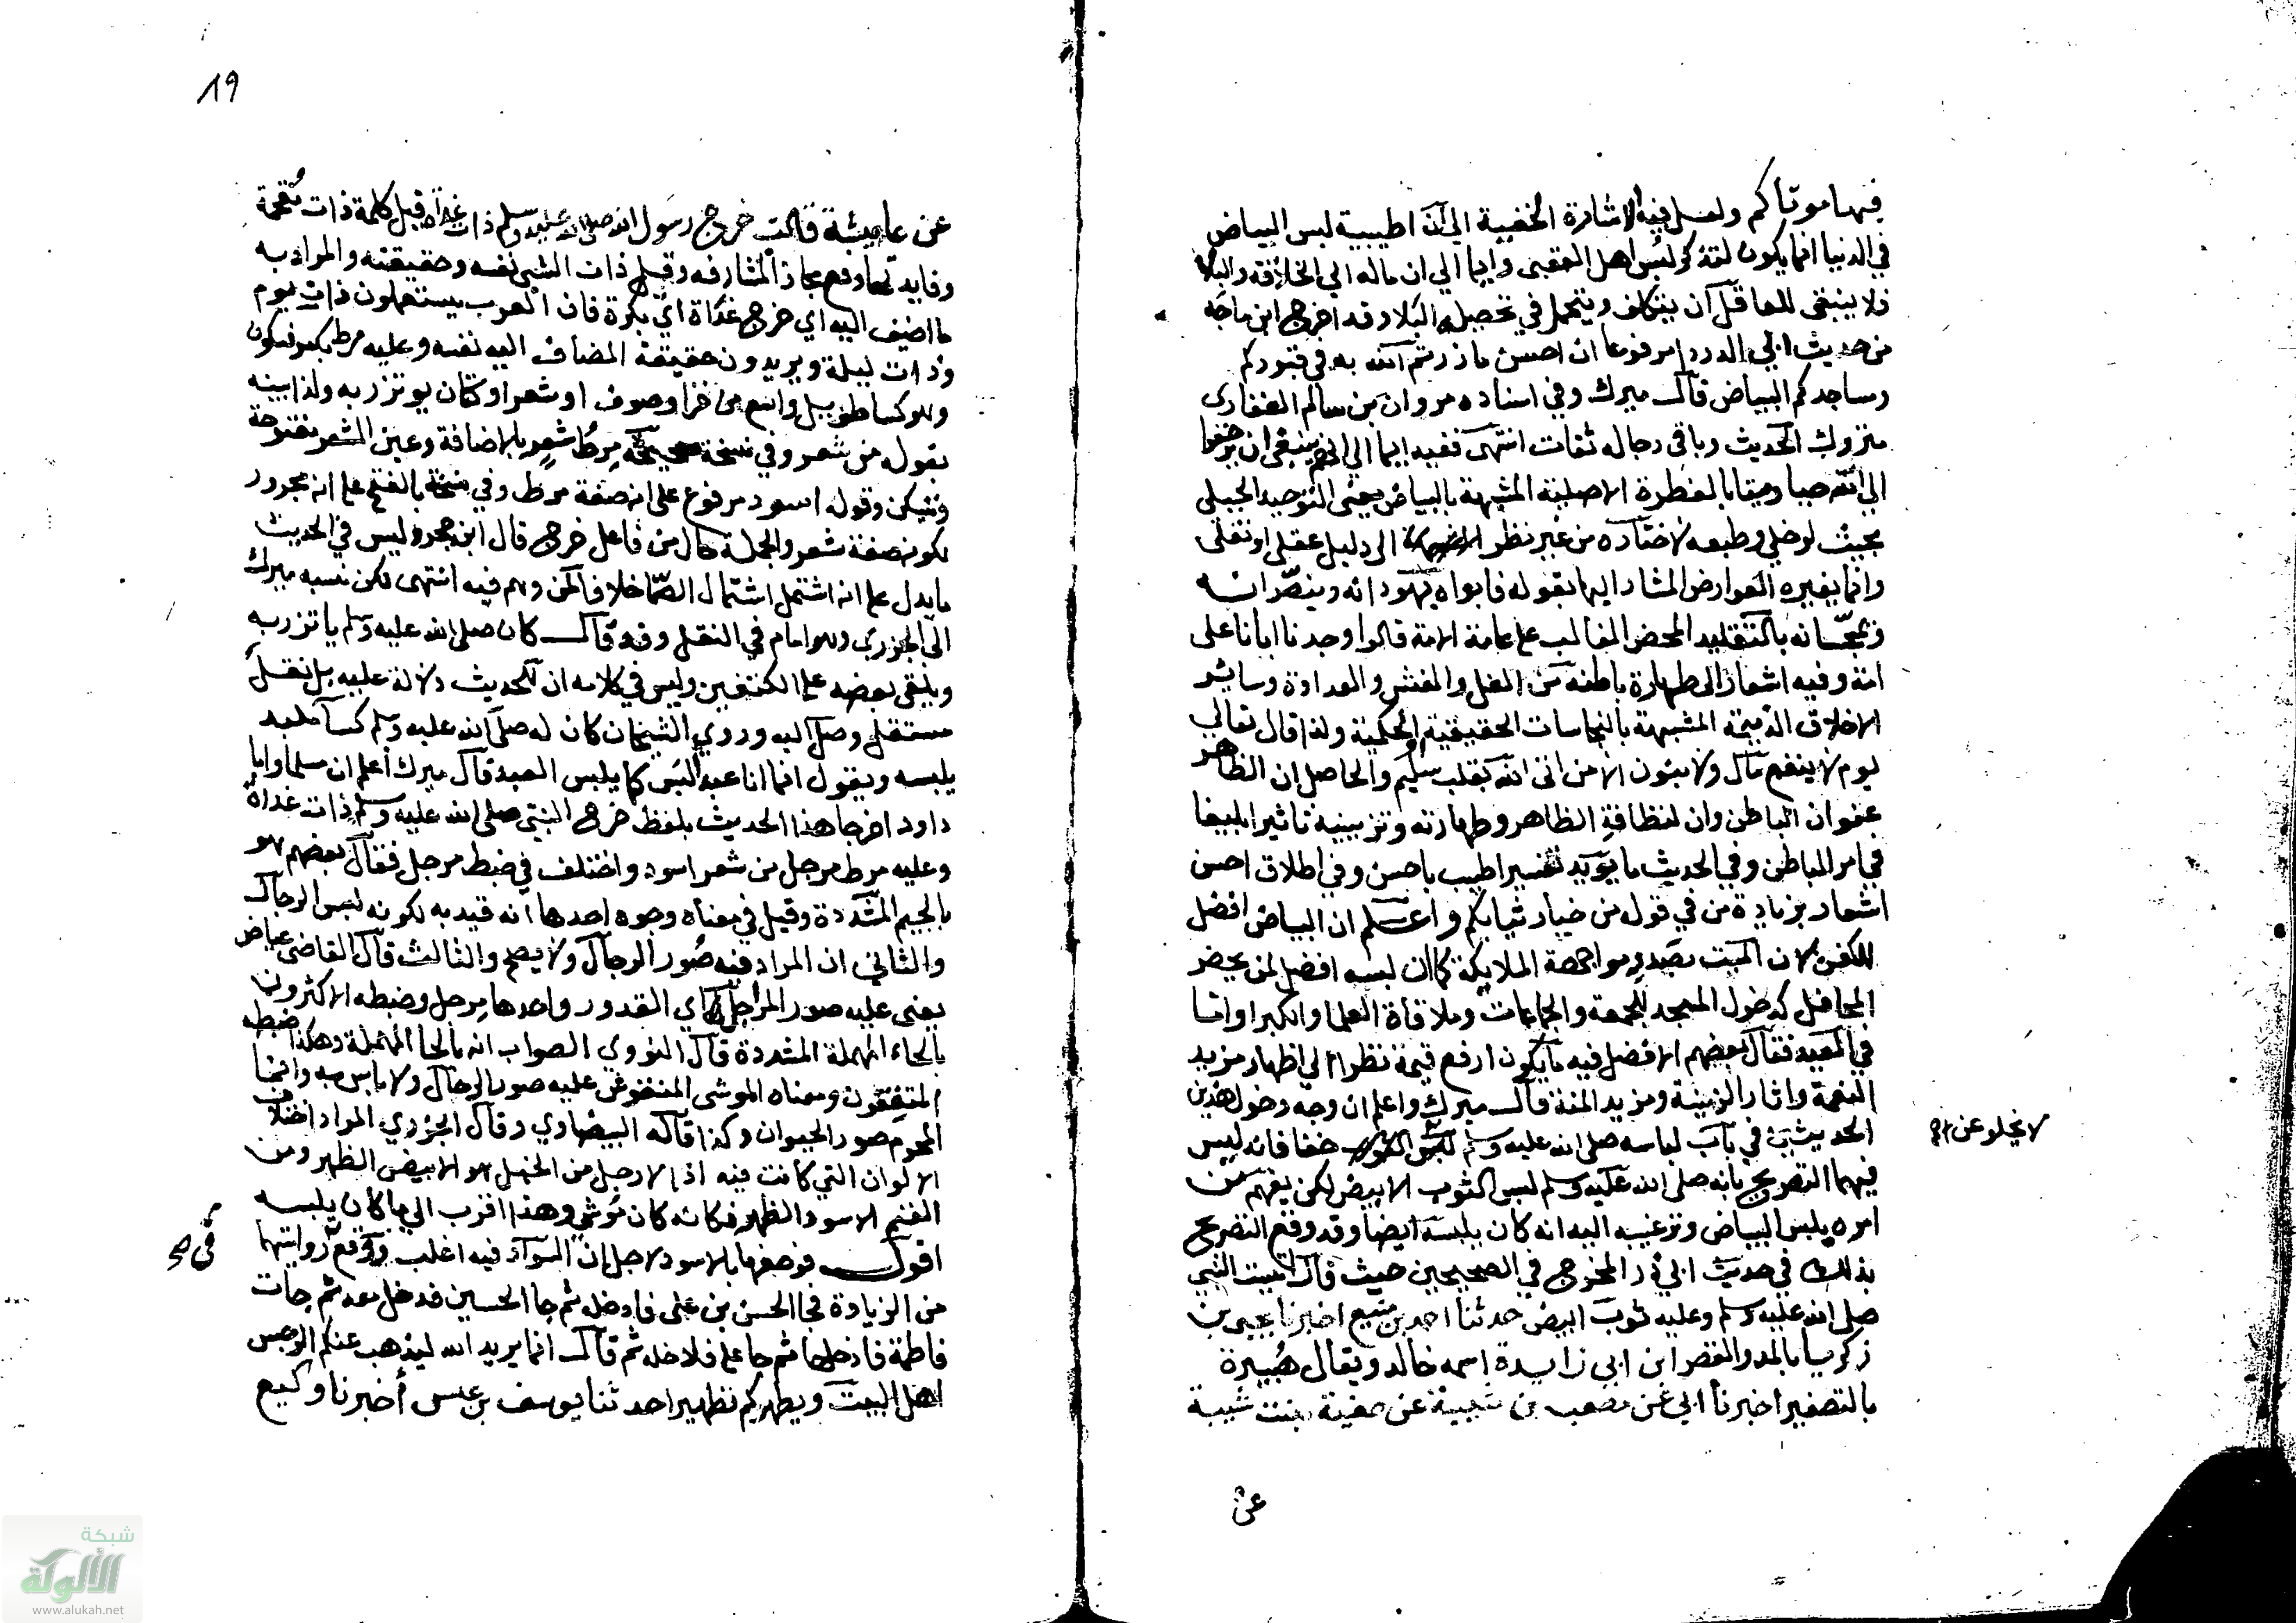 فيها موتاكم ولعل فيه الاشارة الخفية الى ان اطيبية لبس البياض
في الدنيا انما يكون لتذكر لبس اهل العقبى وايما الي ان ماله الي الخلاقة والبلا
فلا ينبغي للعاقل ان يتكلف ويتحمل في تحصيله البلا وقد اخرج ابن ماجه
من حديث ابي الدردا مرفوعا ان احسن ما زرتم الله به في قبوركم
ومساجدكم البياض قال ميرك وفي اسناده مروان بن سالم الغفاري
متروك الحديث وباقي رجاله ثقات انتهى ففيه ايما الي انهم ينبغي ان يرجعوا
الى الله حيا وميتا بالفطرة الاصلية المشبهة بالبياض يعني التوحيد الجبلي
بحيث لو خلي وطبعه لاختاره من غير نظر الى دليل عقلي او نقلي
وانما يغيره العوارض المشار اليها بقوله فابواه يهودانه وينصرانه
ويمجسانه بالتقليد المحض الغالب على عامة الامة قالوا وجدنا اباءنا على
امة وفيه اشعار الى طهارة باطنه من الغل والغش والعداوة وسائر
الاخلاق الذميمة المشبهة بالنجاسات الحقيقية الحكمية ولذا قال تعالي
يوم لا ينفع مال ولا بنون الا من اتى الله بقلب سليم والحاصل ان الظاهر
عنوان الباطن وان لنظافة الظاهر وطهارته وتزيينه تاثيرا بليغا
في امر الباطن وفي الحديث ما يؤيد تفسير اطيب باحسن وفي اطلاق احسن
اشعار بزيادة من في قوله من خيار ثيابكم واعلم ان البياض افضل
للكفن لان الميت بصدد مواجهة الملايكة كما ان لبسه افضل لمن يحضر
المحافل كدخول المسجد للجمعة والجماعات وملاقاة العلما والكبرا واما
في العيد فقال بعضهم الافضل فيه ما يكون ارفع قيمة نظرا الي اظهار مزيد
النعمة واثار الزينة ومزيد المنة قال ميرك واعلم ان وجه دخول هذين
الحديثين في باب لباسه صلى الله عليه وسلم خفا فانه ليس
لا يخلو عن
فيهما التصريح بانه صلى الله عليه وسلم لبس الثوب الابيض لكن يفهم من
امره بلبس البياض وترغيبه اليه انه كان يلبسه ايضا وقد وقع التصريح
بذلك في حديث ابي ذر المخرج في الصحيحين حيث قال اتيت النبي
صلى الله عليه وسلم وعليه ثوب ابيض حدثنا احمد بن منيع اخبرنا يحيى بن
زكريا بالمد والقصر ابن ابي زايدة اسمه خالد ويقال هبيرة
بالتصغير اخبرنا ابي عن مصعب بن شيبة عن صفية بنت شيبة
عن
١٩
عن عايشة قالت خرج رسول الله صلى الله عليه وسلم ذات غداة قيل كلمة ذات مقحمة
وفايدتها دفع مجاز المشارفه وقيل ذات الشي نفسه وحقيقته والمراد به
ما اضيف اليه اي خرج غداة اي بكرة فان العرب يستعملون ذات يوم
وذات ليلة ويريدون حقيقة المضاف اليه نفسه وعليه مرط بكسر فسكون
وهو كسا طويل واسع من خز او صوف او شعر او كتان يوتزر به ولذا بينه
بقوله من شعر وفي نسخة صحيحة مرط شعر بالاضافة وعين الشعر مفتوحة
وتسكن وقوله اسود مرفوع على انه صفة مرط وفي نسخة بالفتح على انه مجرور
لكونه صفة شعر والجملة حال من فاعل خرج قال ابن حجر وليس في الحديث
ما يدل على انه اشتمل اشتمال الصما خلافا لمن وهم فيه انتهى لكن نسبه ميرك
الى الجزري وهو امام في النقل وقد قال كان صلى الله عليه وسلم ياتزر به
ويلقى بعضه على الكتفين وليس في كلامه ان للحديث دلالة عليه بل نقل
مستقل وصل اليه وروي الشيخان كان له صلى الله عليه وسلم كسا ملبد
يلبسه ويقول انما انا عبد البس كما يلبس العبد قال ميرك اعلم ان مسلما وابا
داود اخرجا هذا الحديث بلفظ خرج النبي صلى الله عليه وسلم ذات غداة
وعليه مرط مرجل من شعر اسود واختلف في ضبط مرجل فقال بعضهم هو
بالجيم المشددة وقيل في معناه وجوه احدها انه قيد به لكونه لبس الرجال
والثاني ان المراد فيه صور الرجال ولا يصح والثالث قال القاضي عياض
يعني عليه صور المراجل اي القدور واحدها مرجل وضبطه الاكثرون
بالحاء المهملة المشددة قال النووي الصواب انه بالحا المهملة وهكذا ضبطه
المتقنون ومعناه الموشى المنقوش عليه صور الرحال ولا باس به وانما
المحرم صور الحيوان وكذا قاله البيضاوي وقال الجزري المراد اختلاف
الالوان التي كانت فيه اذ الارحل من الخيل هو الابيض الظهر ومن
الغنم الاسود الظهر فكانه كان موشى وهذا اقرب الي ما كان يلبسه
اقول فوصفها بالاسود لاجل ان السواد فيه اغلب ووقع روايتهما
في صح
من الزيادة فجا الحسن بن علي فادخله ثم جا الحسين فدخل معه ثم جات
فاطمة فادخلها ثم جا علي فادخله ثم قال انما يريد الله ليذهب عنكم الرجس
اهل البيت ويطهركم تطهيرا حدثنا يوسف بن عيسى أخبرنا وكيع
شبكة
الألوكة
www.alukah.net